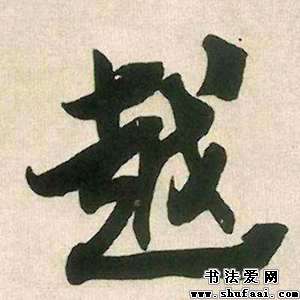 越
书法爱网
www.shufaai.com